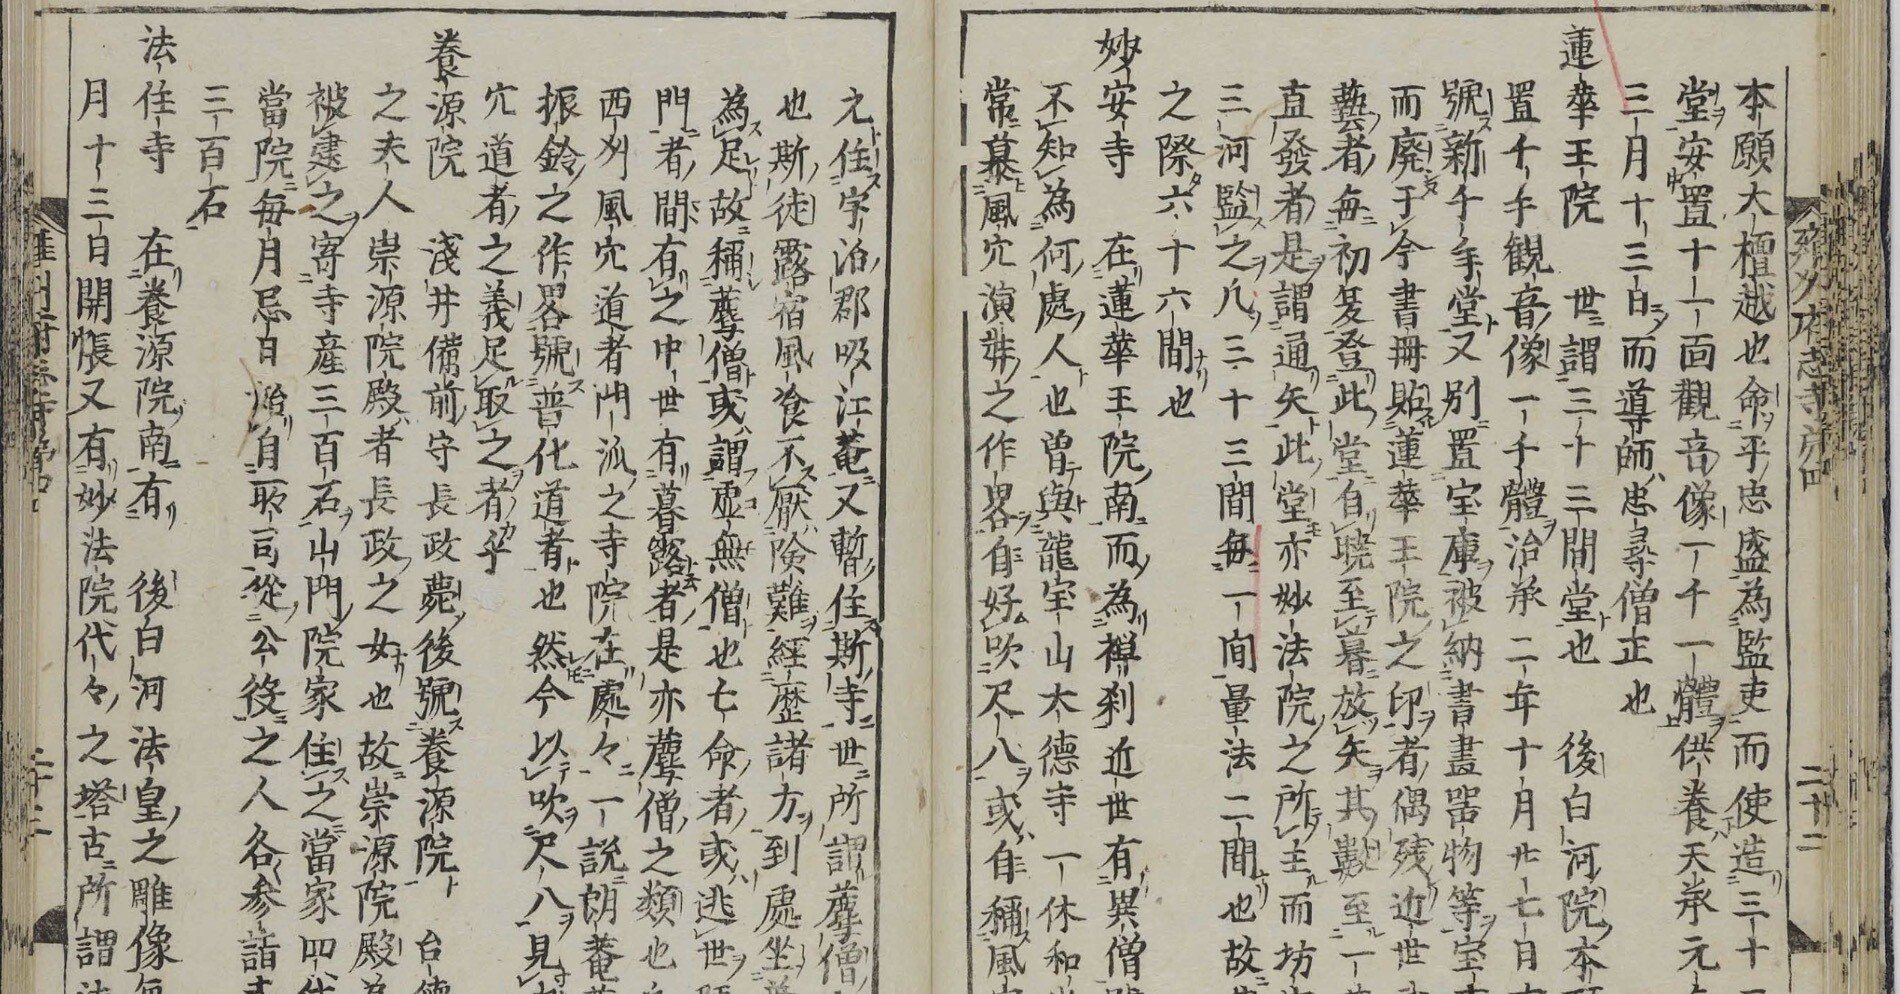 本願大檀越也命乎忠盛為監吏而使造三十
堂安置十一面觀音像一千一體供養天承元
三月十三日而導師忠尋僧正也
蓮華王院 世謂三十三間堂也 後白河院本
置千手観音像一千體治承二年十月廿七日
號新千手堂又別置宝庫被納書畫噐物等宝
而廢于今書冊貼蓮華王院之印者偶残近世
藝者毎初夏登此堂自曉至暮放矢其數至一
直發者是謂通矢此堂亦妙法院之所主而坊
三河監之凡三十三間毎一間量法二間也故
之際六十六間也
妙安寺 在蓮華王院南而為禅刹近世有異僧
不知為何處人也曽與龍宝山大德寺一休和
常慕風穴演弉之作畧自好吹尺八或自稱風
雍州府志寺第四 二十二
元住宇治郡吸江菴又暫住斯寺世所謂薦僧
也斯徒露宿風飡不厭険難經歷諸方到處坐
為足故稱薦僧或謂虚無僧也亡命者或逃世
門者間有之中世有暮露者是亦薦僧之類也
西刕風穴道者門派之寺院在處々一說朗菴
振鈴之作畧號普化道者也然今以吹尺八見
穴道者之義足取之者乎
養源院 淺井備前守長政薨後號養源院 台德
之夫人崇源院殿者長政之女也故崇源院殿為
被建之寄寺産三百石山門院家住之當家四代
當院毎月忌日治自所司從公役之人各参詣
三百石
法住寺 在養源院南有 後白河法皇之雕像毎
月十三日開帳又有妙法院代々之塔古所謂法